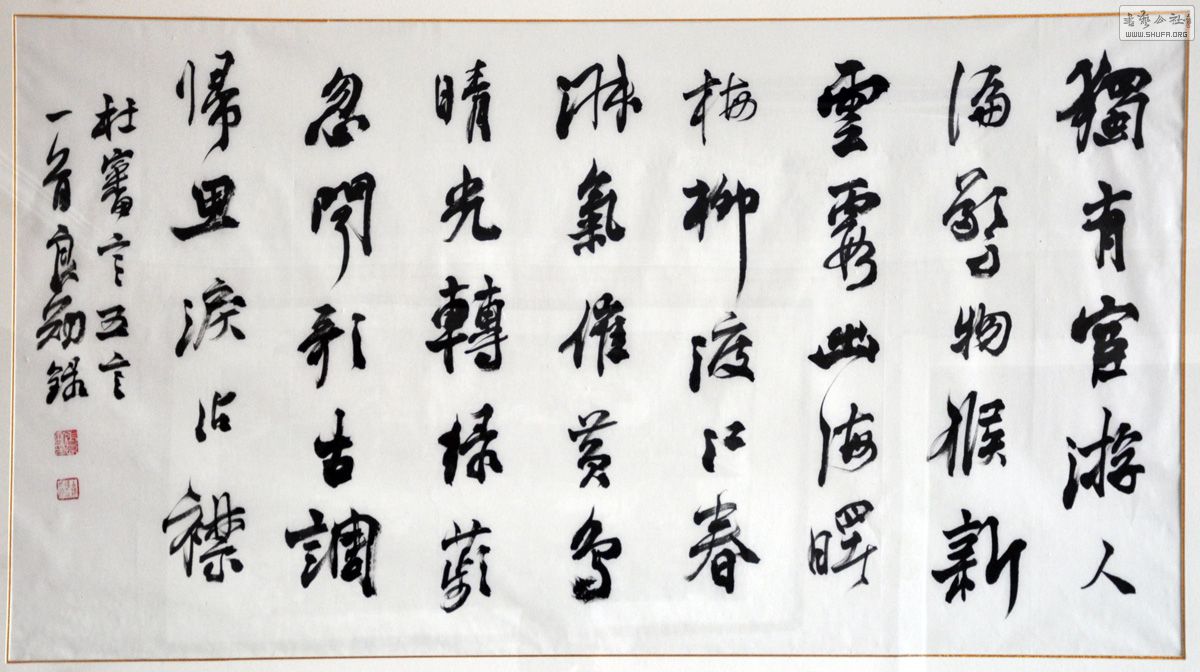 獨有宦游人
偏驚物候新
雲霞出海曙
梅柳渡江春
淑氣催黃鳥
晴光轉緑蘋
忽聞歌古調
歸思淚沾襟
杜審言五言
一首良錄
书艺公社
WWW.SHUFA.ORG